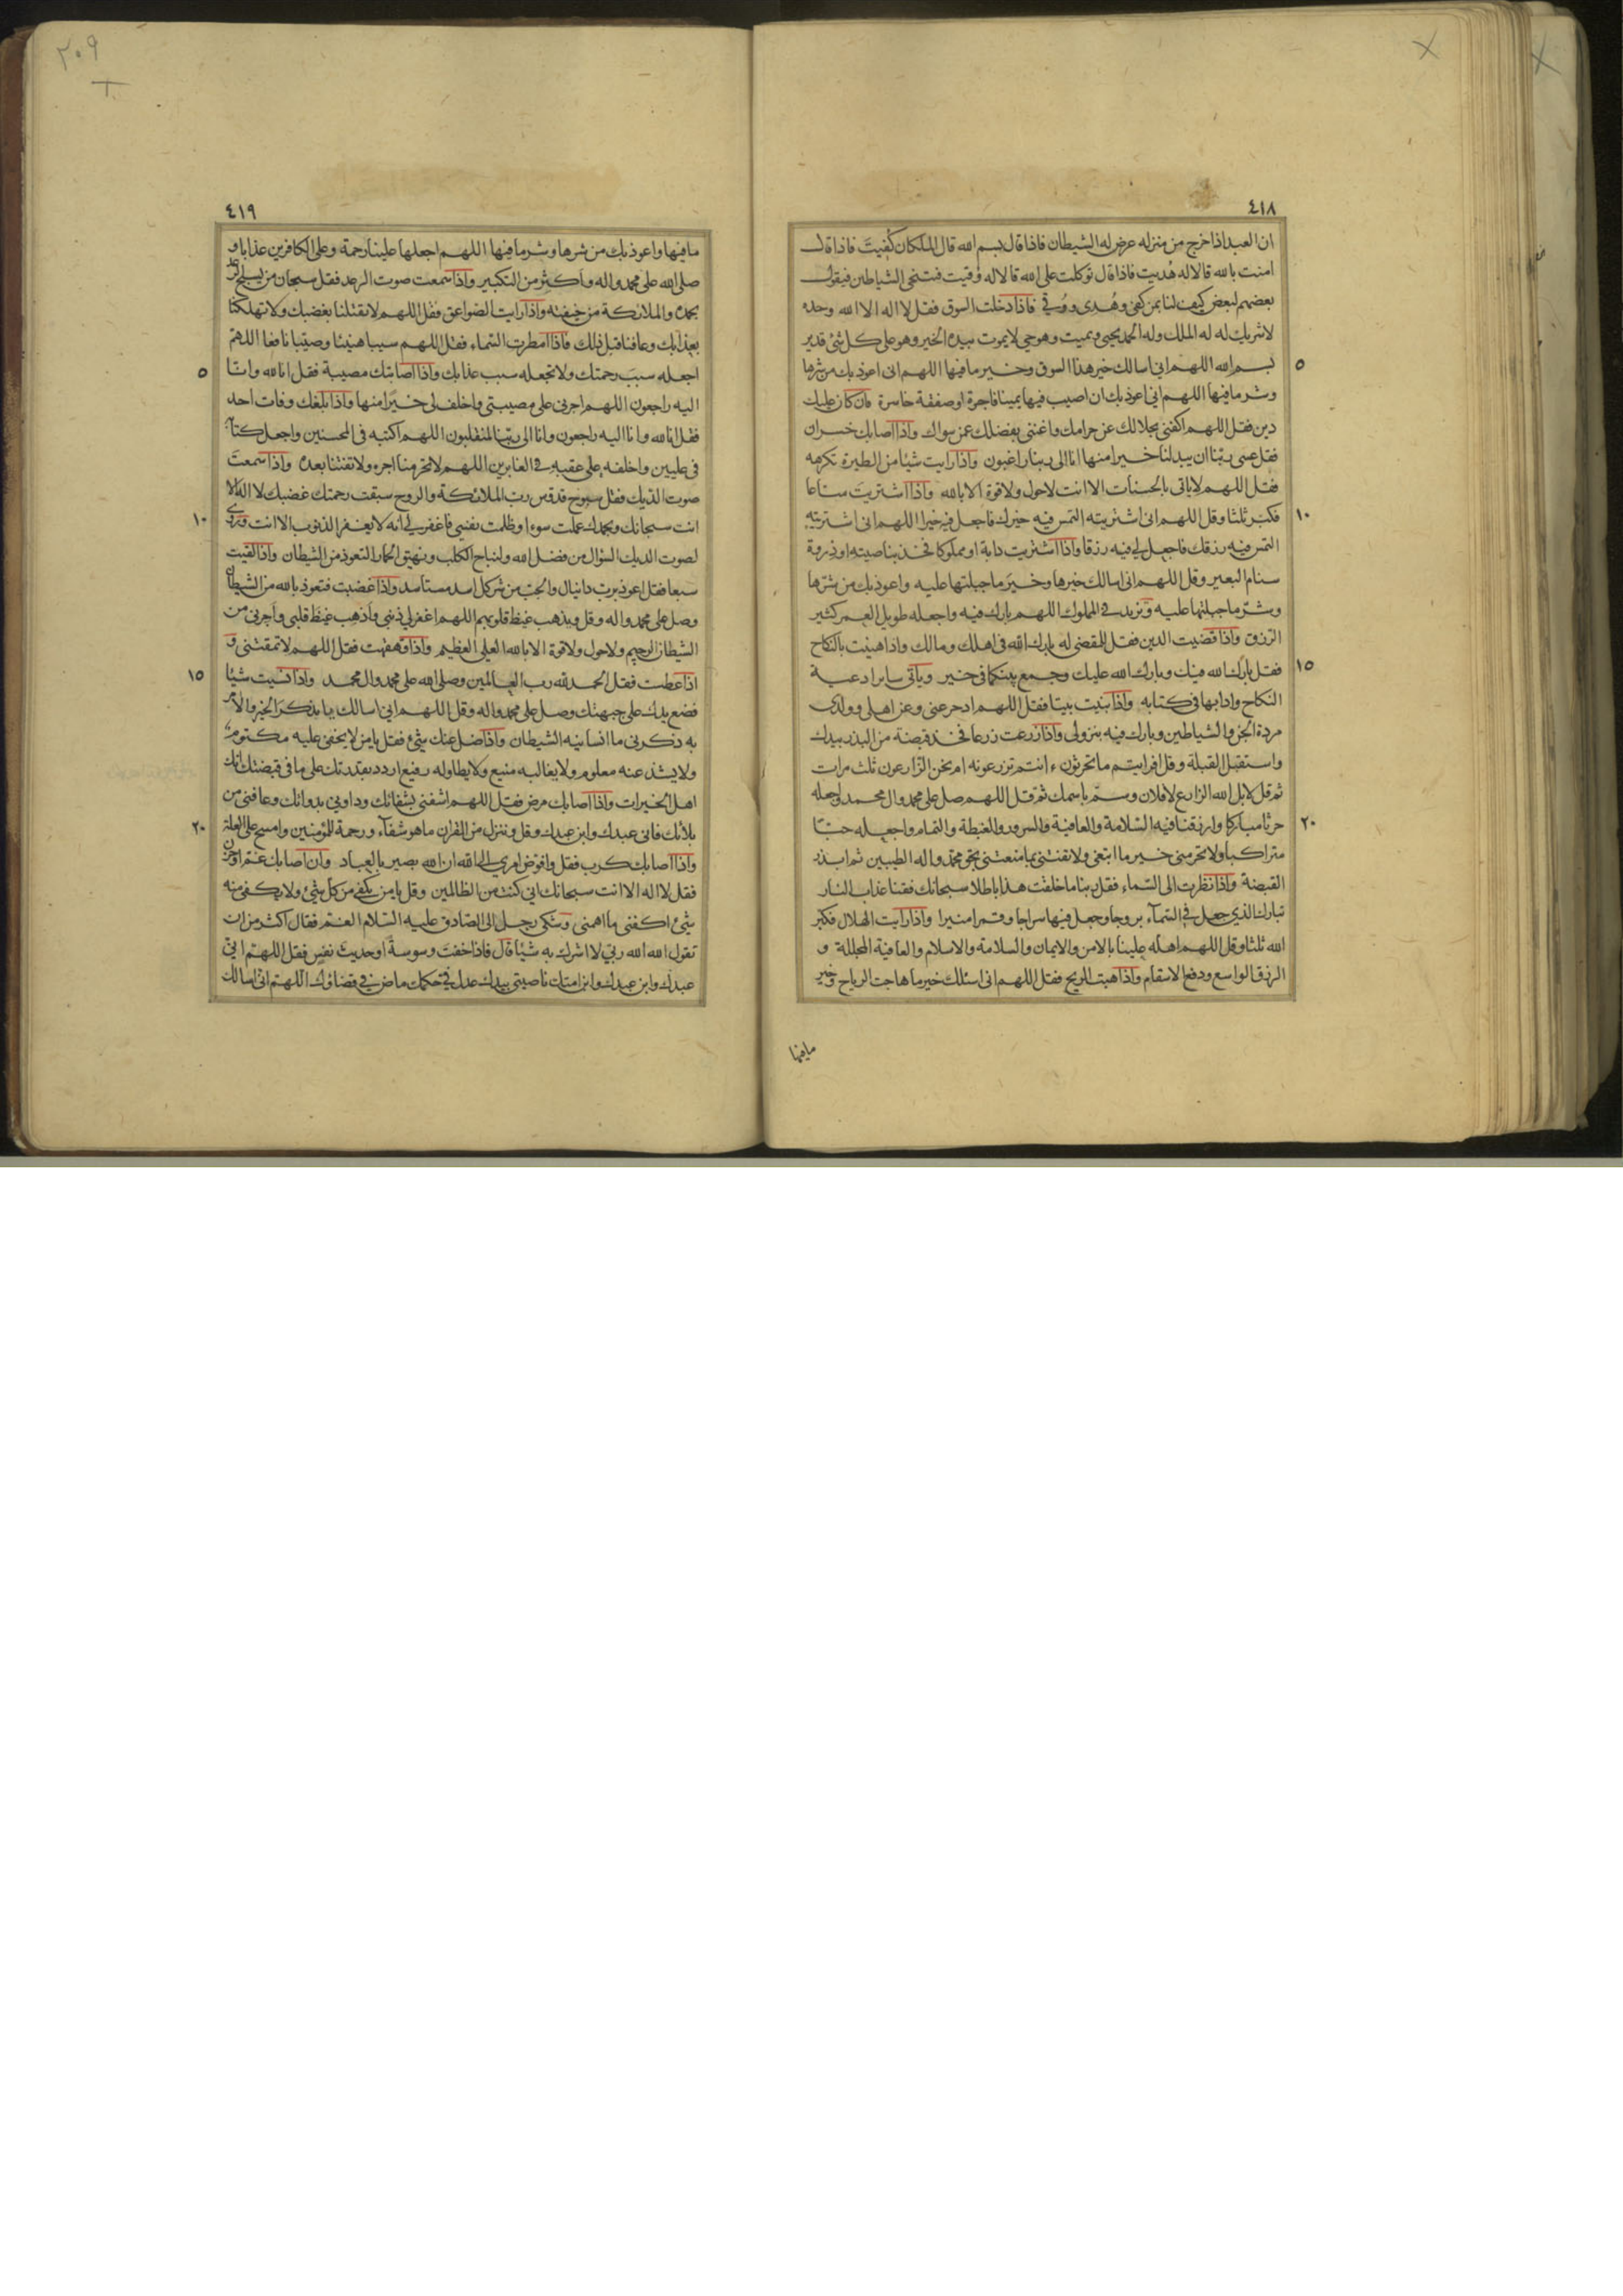 ٤١٨
ان العبد اذا خرج من منزله عرض له الشيطان فاذا قال بسم الله قال الملكان كُفيتَ فاذا قال
امنت بالله قالا له هُديت فاذا قال توكلت على الله قالا له وُقيت فتنحى الشياطين فيقول
بعضهم لبعض كيف لنا بمن كفى وهُدى ووُقى فاذا دخلت السوق فقل لا اله الا الله وحده
لا شريك له له الملك وله الحمد يحيى ويميت وهو حى لا يموت بيده الخير وهو على كل شئ قدير
٥
بسم الله اللهم انى اسالك خير هذا السوق وخير ما فيها اللهم انى اعوذ بك من شرها
وشر ما فيها اللهم انى اعوذ بك ان اصيب فيها يمينا فاجرة او صفقة خاسرة فان كان عليك
دين فقل اللهم اكفنى بحلالك عن حرامك واغننى بفضلك عمن سواك واذا اصابك خسران
فقل عسى ربنا ان يبدلنا خيرا منها انا الى ربنا راغبون واذا رايت شيئا من الطيرة تكرهه
فقل اللهم لا ياتى بالحسنات الا انت لا حول ولا قوة الا بالله واذا اشتريت متاعا
١٠
فكبر ثلثا وقل اللهم انى اشتريته التمس فيه خيرك فاجعل فيه خيرا اللهم انى اشتريته
التمس فيه رزقك فاجعل لى فيه رزقا واذا اشتريت دابة او مملوكا فخذ بناصيته او ذروة
سنام البعير وقل اللهم انى اسالك خيرها وخير ما جبلتها عليه واعوذ بك من شرها
وشر ما جبلتها عليه وتزيد فى المملوك اللهم بارك فيه واجعله طويل العمر كثير
الرزق واذا قضيت الدين فقل للمقضى له بارك الله فى اهلك ومالك واذا هنيت بالنكاح
١٥
فقل بارك الله فيك وبارك الله عليك وجمع بينكما فى خير وياتى ساير ادعية
النكاح وادابها فى كتابه واذا بنيت بيتا فقل اللهم ادحر عنى وعن اهلى وولدى
مردة الجن والشياطين وبارك فيه بنزولى واذا زرعت زرعا فخذ قبضة من البذر بيدك
واستقبل القبلة وقل افرايتم ما تحرثون ءانتم تزرعونه ام نحن الزارعون ثلث مرات
ثم قل لا بل الله الزارع لا فلان وسم باسمك ثم قل اللهم صل على محمد وال محمد واجعله
٢٠
حرثا مباركا وارزقنا فيه السلامة والعافية والسرور والغبطة والتمام واجعله حبا
متراكبا ولا تحرمنى خير ما ابتغى ولا تفتنى بما متعتنى بحق محمد واله الطيبين ثم ابذر
القبضة واذا نظرت الى السماء فقل ربنا ما خلقت هذا باطلا سبحانك فقنا عذاب النار
تبارك الذى جعل فى السمآء بروجا وجعل فيها سراجا وقمرا منيرا واذا رايت الهلال فكبر
الله ثلثا وقل اللهم اهله علينا بالامن والايمان والسلامة والاسلام والعافية المجللة و
الرزق الواسع ودفع الاسقام واذا هبت الريح فقل اللهم انى اسئلك خير ما هاجت الرياح وخير
ما فيها
٢٠٩
٤١٩
ما فيها واعوذ بك من شرها وشر ما فيها اللهم اجعلها علينا رحمة وعلى الكافرين عذابا و
صلى الله على محمد واله واكثر من التكبير واذا سمعت صوت الرعد فقل سبحان من يسبح الرعد
بحمده والملائكة من خيفته واذا رايت الصواعق فقل اللهم لا تقتلنا بغضبك ولا تهلكنا
بعذابك وعافنا قبل ذلك فاذا امطرت السماء فقل اللهم سيبا هنيئا وصيبا نافعا اللهم
٥
اجعله سبب رحمتك ولا تجعله سبب عذابك واذا اصابتك مصيبة فقل انا لله وانا
اليه راجعون اللهم اجرنى على مصيبتى واخلف لى خيرا منها واذا بلغك وفات احد
فقل انا لله وانا اليه راجعون وانا الى ربنا لمنقلبون اللهم اكتبه فى المحسنين واجعل كتابه
فى عليين واخلفه على عقبه فى الغابرين اللهم لا تحرمنا اجره ولا تفتنا بعده واذا سمعت
صوت الديك فقل سبوح قدوس رب الملائكة والروح سبقت رحمتك غضبك لا اله الا
١٠
انت سبحانك وبحمدك عملت سوءا وظلمت نفسى فاغفر لى انه لا يغفر الذنوب الا انت وروى
لصوت الديك السؤال من فضل الله ولنباح الكلب ونهيق الحمار التعوذ من الشيطان واذا لقيت
سبعا فقل اعوذ برب دانيال والجب من شر كل اسد مستاسد واذا غضبت فتعوذ بالله من الشيطان
وصل على محمد واله وقل ويذهب غيظ قلوبهم اللهم اغفر لى ذنبى واذهب غيظ قلبى واجرنى من
الشيطان الرجيم ولا حول ولا قوة الا بالله العلى العظيم واذا قهقهت فقل اللهم لا تمقتنى و
١٥
اذا عطست فقل الحمد لله رب العالمين وصلى الله على محمد وال محمد واذا نسيت شيئا
فضع يدك على جبهتك وصل على محمد واله وقل اللهم انى اسالك يا مذكر الخير والآمر
به ذكرنى ما انسانيه الشيطان واذا ضل عنك شئ فقل يا من لا يخفى عليه مكتوم
ولا يشذ عنه معلوم ولا يغالبه منيع ولا يطاوله رفيع اردد بقدرتك على ما فى قبضتك انك
اهل الخيرات واذا اصابك مرض فقل اللهم اشفنى بشفائك وداونى بدوائك وعافنى من
٢٠
بلائك فانى عبدك وابن عبدك وقل وننزل من القران ما هو شفاء ورحمة للمؤمنين وامسح على العلة
واذا اصابك كرب فقل وافوض امرى الى الله ان الله بصير بالعباد وان اصابك غم او حزن
فقل لا اله الا انت سبحانك انى كنت من الظالمين وقل يا من يكفى من كل شئ ولا يكفى منه
شئ اكفنى ما اهمنى وشكى رجل الى الصادق عليه السلام الغم فقال اكثر من ان
تقول الله الله ربى لا اشرك به شيئا قال فاذا خفت وسوسة او حديث نفس فقل اللهم انى
عبدك وابن عبدك وابن امتك ناصيتى بيدك عدل فى حكمك ماض فى قضاؤك اللهم انى اسالك